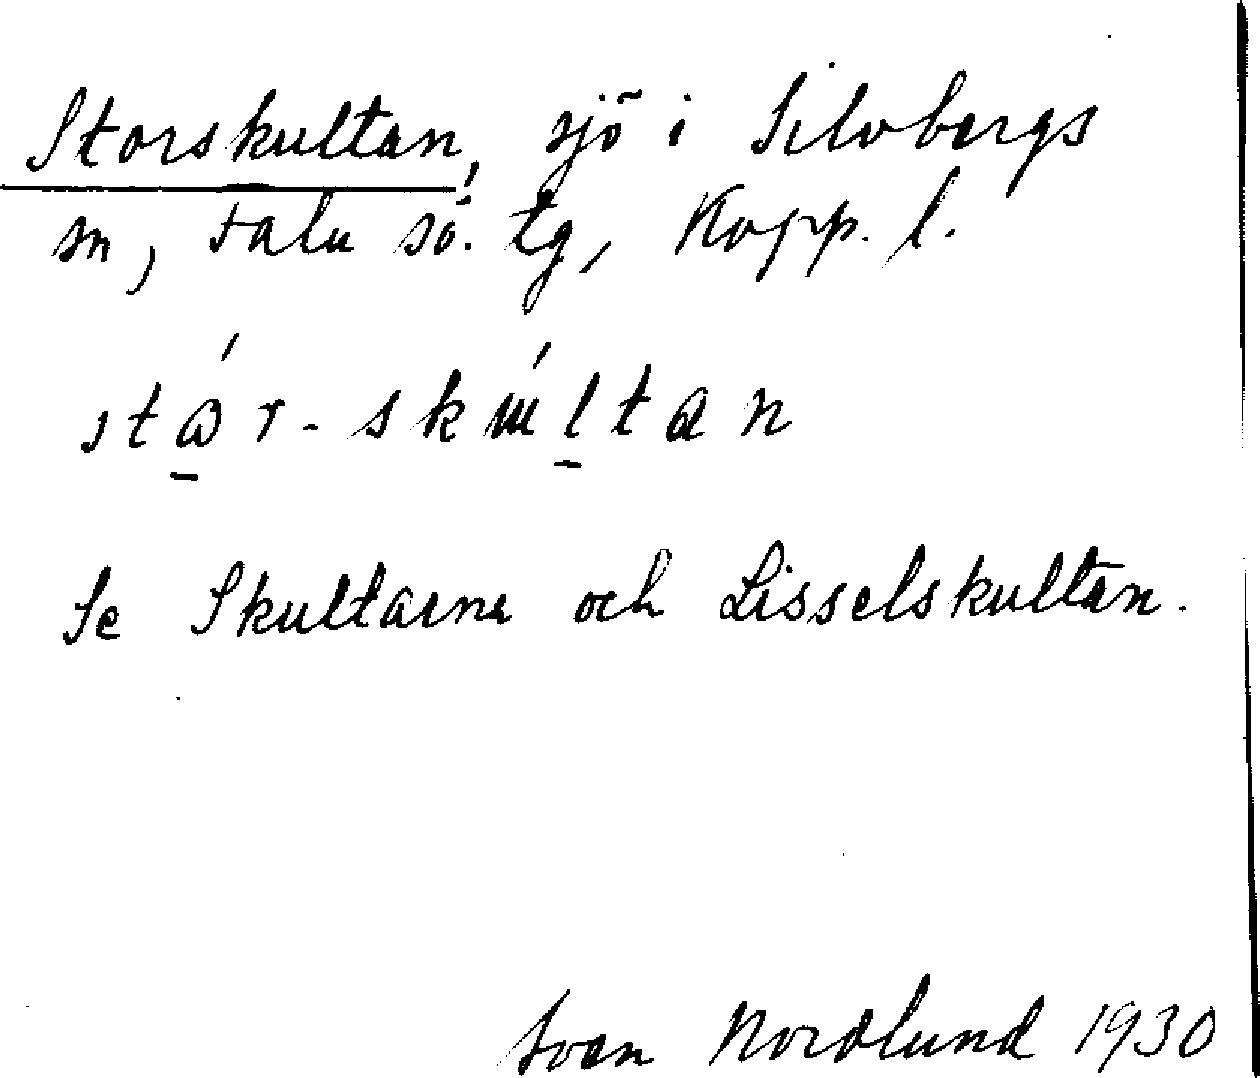 Storskultan, sjö i Silvbergs
sn, Falu sö. tg, Kopp. l.
stɷ́r-skɯ́ltan
Se Skultarna och Lisselskultan.
Sven Nordlund 1930